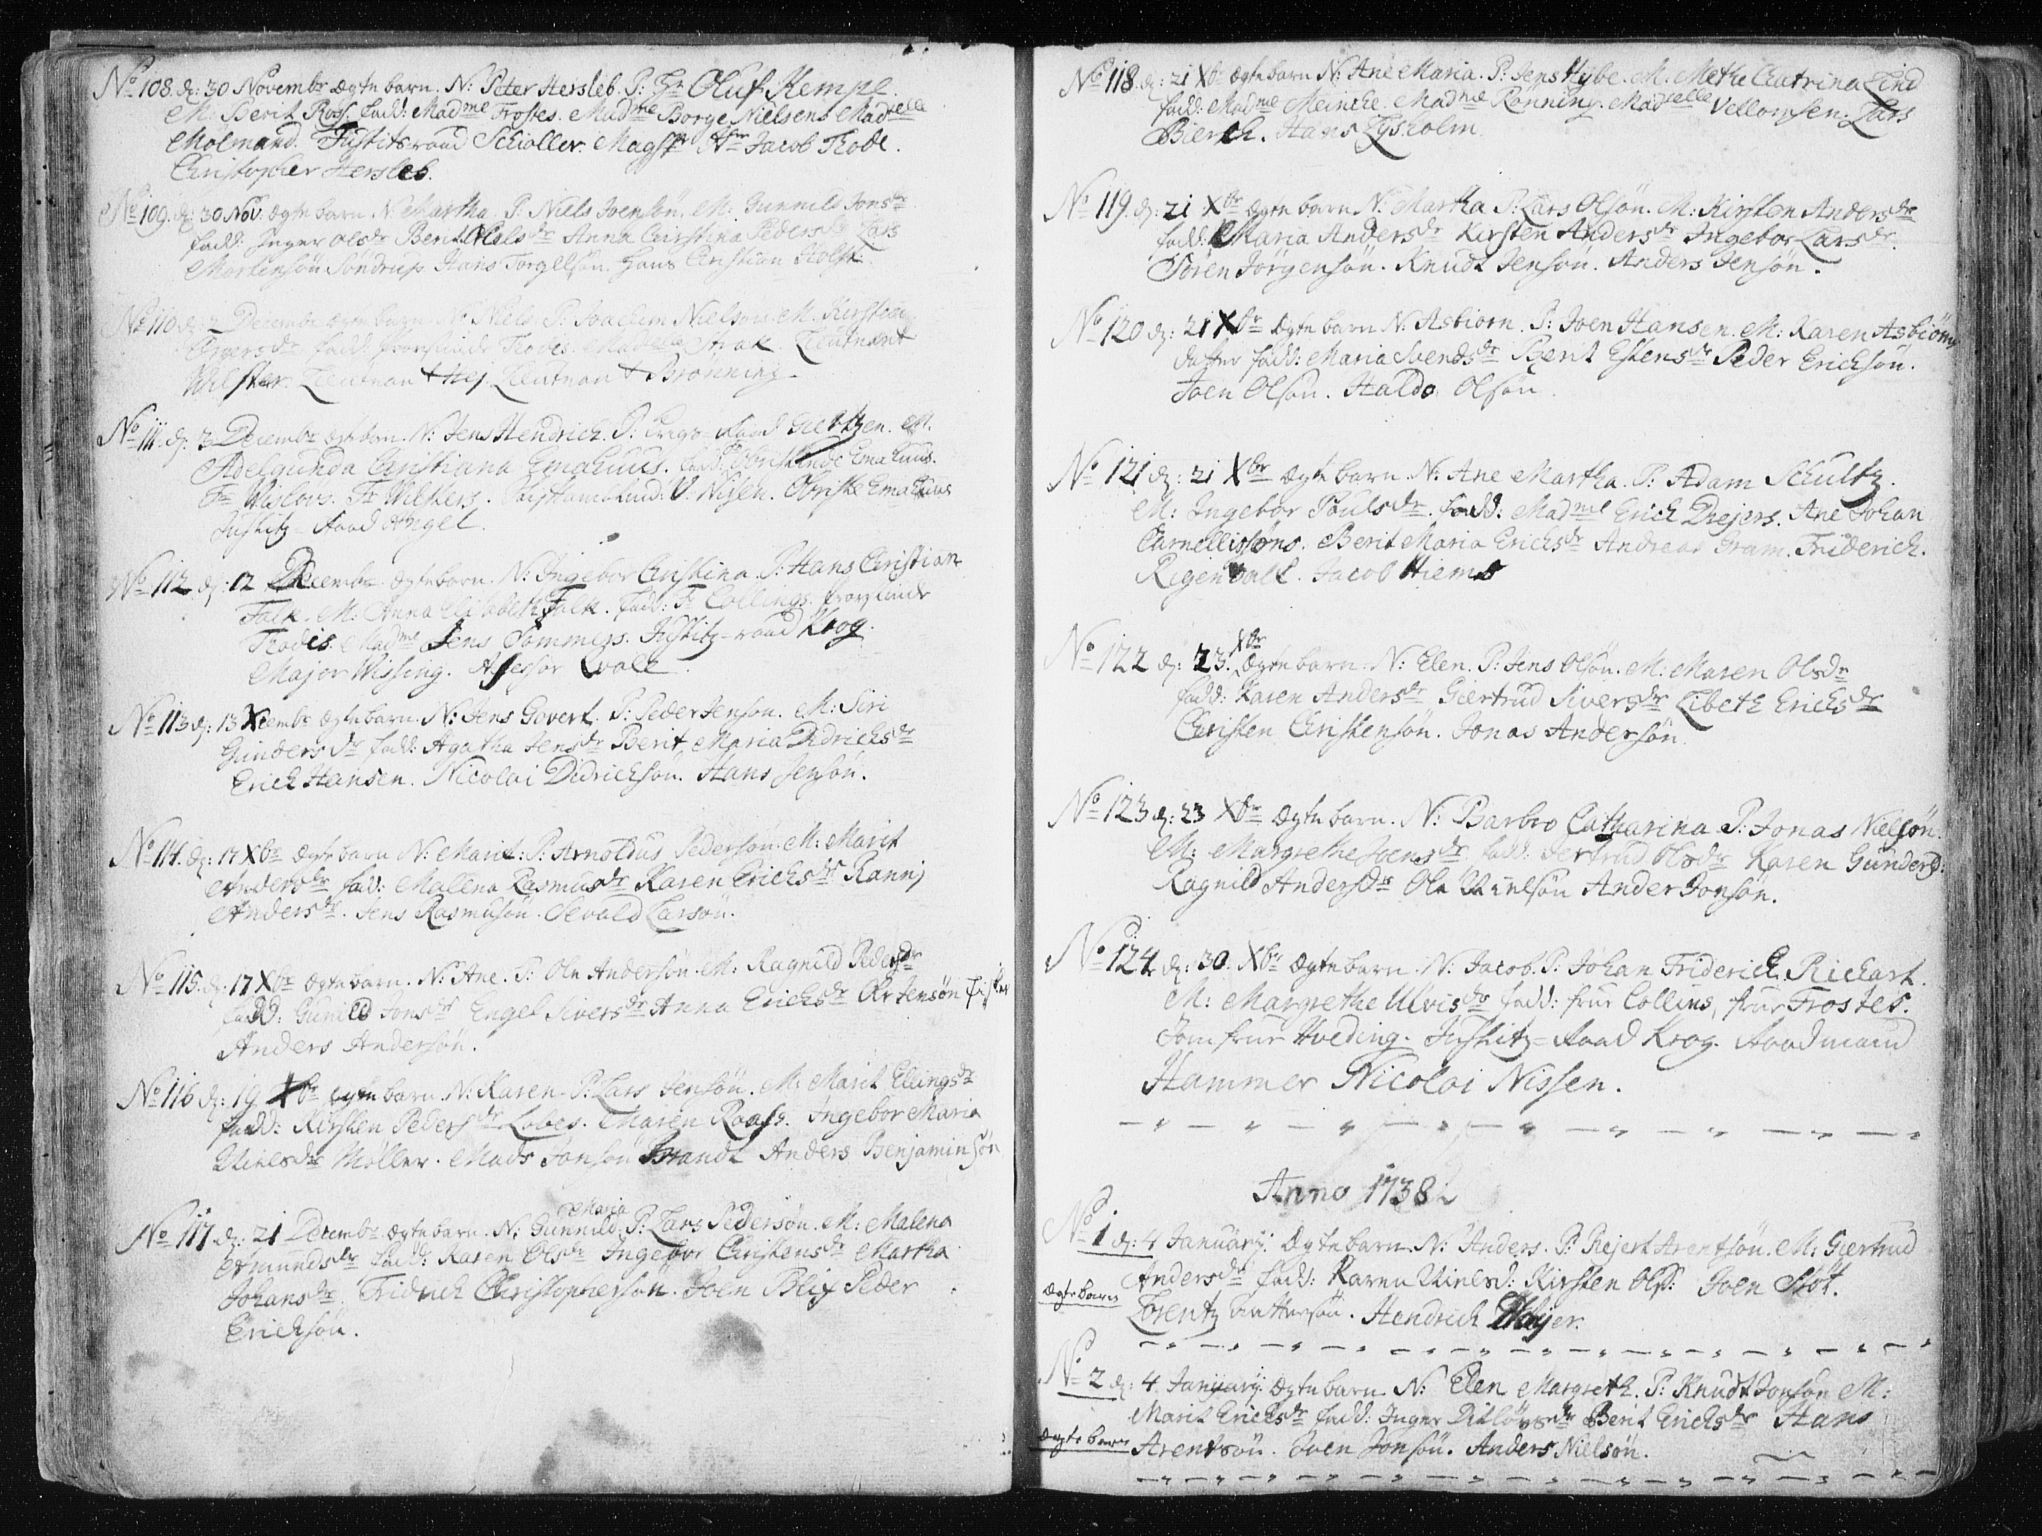 No 108. d: 30 Novembr ægte barn. N: Peter Hersleb. P: Hr Oluf Kempe.
M: Berit Ross. fadd: Madme Frostes. Madme Borge Nielsens Madselle
Molmand. Justitsraad Schiøller. Magstr Hr Jacob Thode.
Christopher Hersleb.
No 109. d: 30 Nov. ægte barn. N: Martha. P: Niels Joensøn. M: Gunnild Jonsdr
fadd: Inger Olsdr Berit Nielsdr Anna Christina Pedersdr Lars
Mortensøn Søndrup Hans Torgelsøn. Hans Christian Holst.
No 110. d: 2 Decembr ægte barn. N: Niels. P: Joachim Nielsøn. M: Kirstena
fadd: Provstinde Thodes. Madselle Strøk. Lieutnant
Wilster. Lieutnant Hej. Lieutnant Brønning
No 111. d: 3 Decembr ægte barn. N: Jens Hendrich. P: Krigs-Raad Gertzen. M:
Adelgunda Christiana Emahuus. fadd: Obristinde Emahuus.
Fr Wislovs. Fr Wilsters. V. Nissen. Obriste Emahuus
Justitz-Raad Angel.
No 112. d: 12 Decembr ægte barn. N: Ingebor Christina. P: Hans Christian
Falk. M: Anna Elisabeth Falk. fadd: Fr Collings. Provstinde
Thodes. Madme Jens Sommers. Justitz-raad Krog.
Major Wissing. Assessor Qvale.
No 113 d: 13 Xcembr ægte barn. N: Jens Govert. P: Peder Jensøn. M: Siri
Gundersdr fadd: Agatha Jensdr Berit Maria Didrichsdr
Erich Hansen. Nicolai Didrichsøn. Hans Jensøn.
No 114. d: 17 Xbr ægte barn N: Marit: P: Arnoldus Pedersøn. M: Marit
Andersdr fad: Malena Rasmusdr Karen Erichsdr Rannj
Andersdr. Jens Rasmusøn. Sevald Larsøn.
No 115. d: 17 Xbr ægte barn. N: Ane. P: Ole Andersøn. M: Ragnild Pedersdr
fadd: Gunild Jonsdr Engel Siversdr Anna Erichsdr Ole Jensøn Fisker
Anders Andersøn.
No 116 d: 19 Xbr ægte barn. N: Karen. P: Lars Jensøn. M: Marit Ellingsdr
fadd: Kirsten Pedersdr Lobes. Maren Raass. Ingebor Maria
Nielsdr Møller. Mads Jonsøn Brandt Anders Benjaminsøn
No 117. d: 21 Decembr ægte barn. N: Gunnild Maria P: Lars Pedersøn. M: Malena
Amundsdr fadd: Karen Olsdr Ingebor Christensdr Martha
Johansdr Fridrich Christophersøn. Joen Blix Peder
Erichsøn.
No 118. d: 21 Xbr ægte barn N: Ane Maria. P: Jens Hybe. M: Methe Chatrina Lind
fadd: Madme Meincke. Madme Rønning. Madselle Vellomsen. Lars
Bierch. Hans Lysholm
No 119. d: 21 Xbr ægte barn N: Martha P: Lars Olsøn. M: Kirsten Andersdr
fadd: Maria Andersdr Kirsten Andersdr Ingebor Larsdr.
Søren Jørgensøn. Knudt Jensøn. Anders Jensøn.
No 120 d: 21 Xbr ægte barn N: Asbiørn. P: Joen Hansen. M: Karen Asbiørns
datter fadd: Maria Svendsdr Berit Estensdr Peder Erichsøn.
Joen Olsøn. Haldo Olsøn
No 121 d: 21 Xbr ægte barn N: Ane Martha. P: Adam Schultz.
M: Ingebor Poulsdr. fadd: Madmel Erich Drejers. Ane Johan
Carnellissøns. Berit Maria Erichsdr Andreas Gram. Friderich.
Regendall. Jacob Hiemb
No 122 d: 23. Xbr ægte barn. N: Elen. P: Jens Olsøn. M: Maren Olsdr
fadd: Karen Andersdr Giertrud Siversdr Lisbeth Erichsdr
Christen Christensøn. Jonas Andersøn
No 123 d: 23 Xbr ægte barn. N: Barbro Catharina P: Jonas Nielsøn.
M: Margrethe Joensdr fadd: Jertrud Olsdr Karen Gundersd:
Ragnild Andersdr Ole Nielsøn Ander Jonsøn.
No 124. d: 30. Xbr ægte barn. N: Jacob. P: Johan Friderich Richart.
M: Margrethe Ulvisdr fadd: frue Collins, frue Frostes.
Jomfrue Hveding. Justitz=Raad Krog. Raadmand
Hammer Nicolai Nissen.
Anno 1738
No 1 d: 4 January. Ægte barn. N: Anders. P: Rejert Arentsøn. M: Giertrud
Andersdr fadd: Karen Nielsd: Kirsten Olsd: Joen Støt.
ægte barn
Lorentz Hendrich Meyer.
No 2 d: 4 January. ægte barn. N: Elen Margreth. P: Knudt Jonsøn M:
Marit Erichsdr fadd: Inger Ditløvsdr Berit Erichsdr Hans
ægte barn Arentsøn. Joen Jonsøn. Anders Nielsøn.